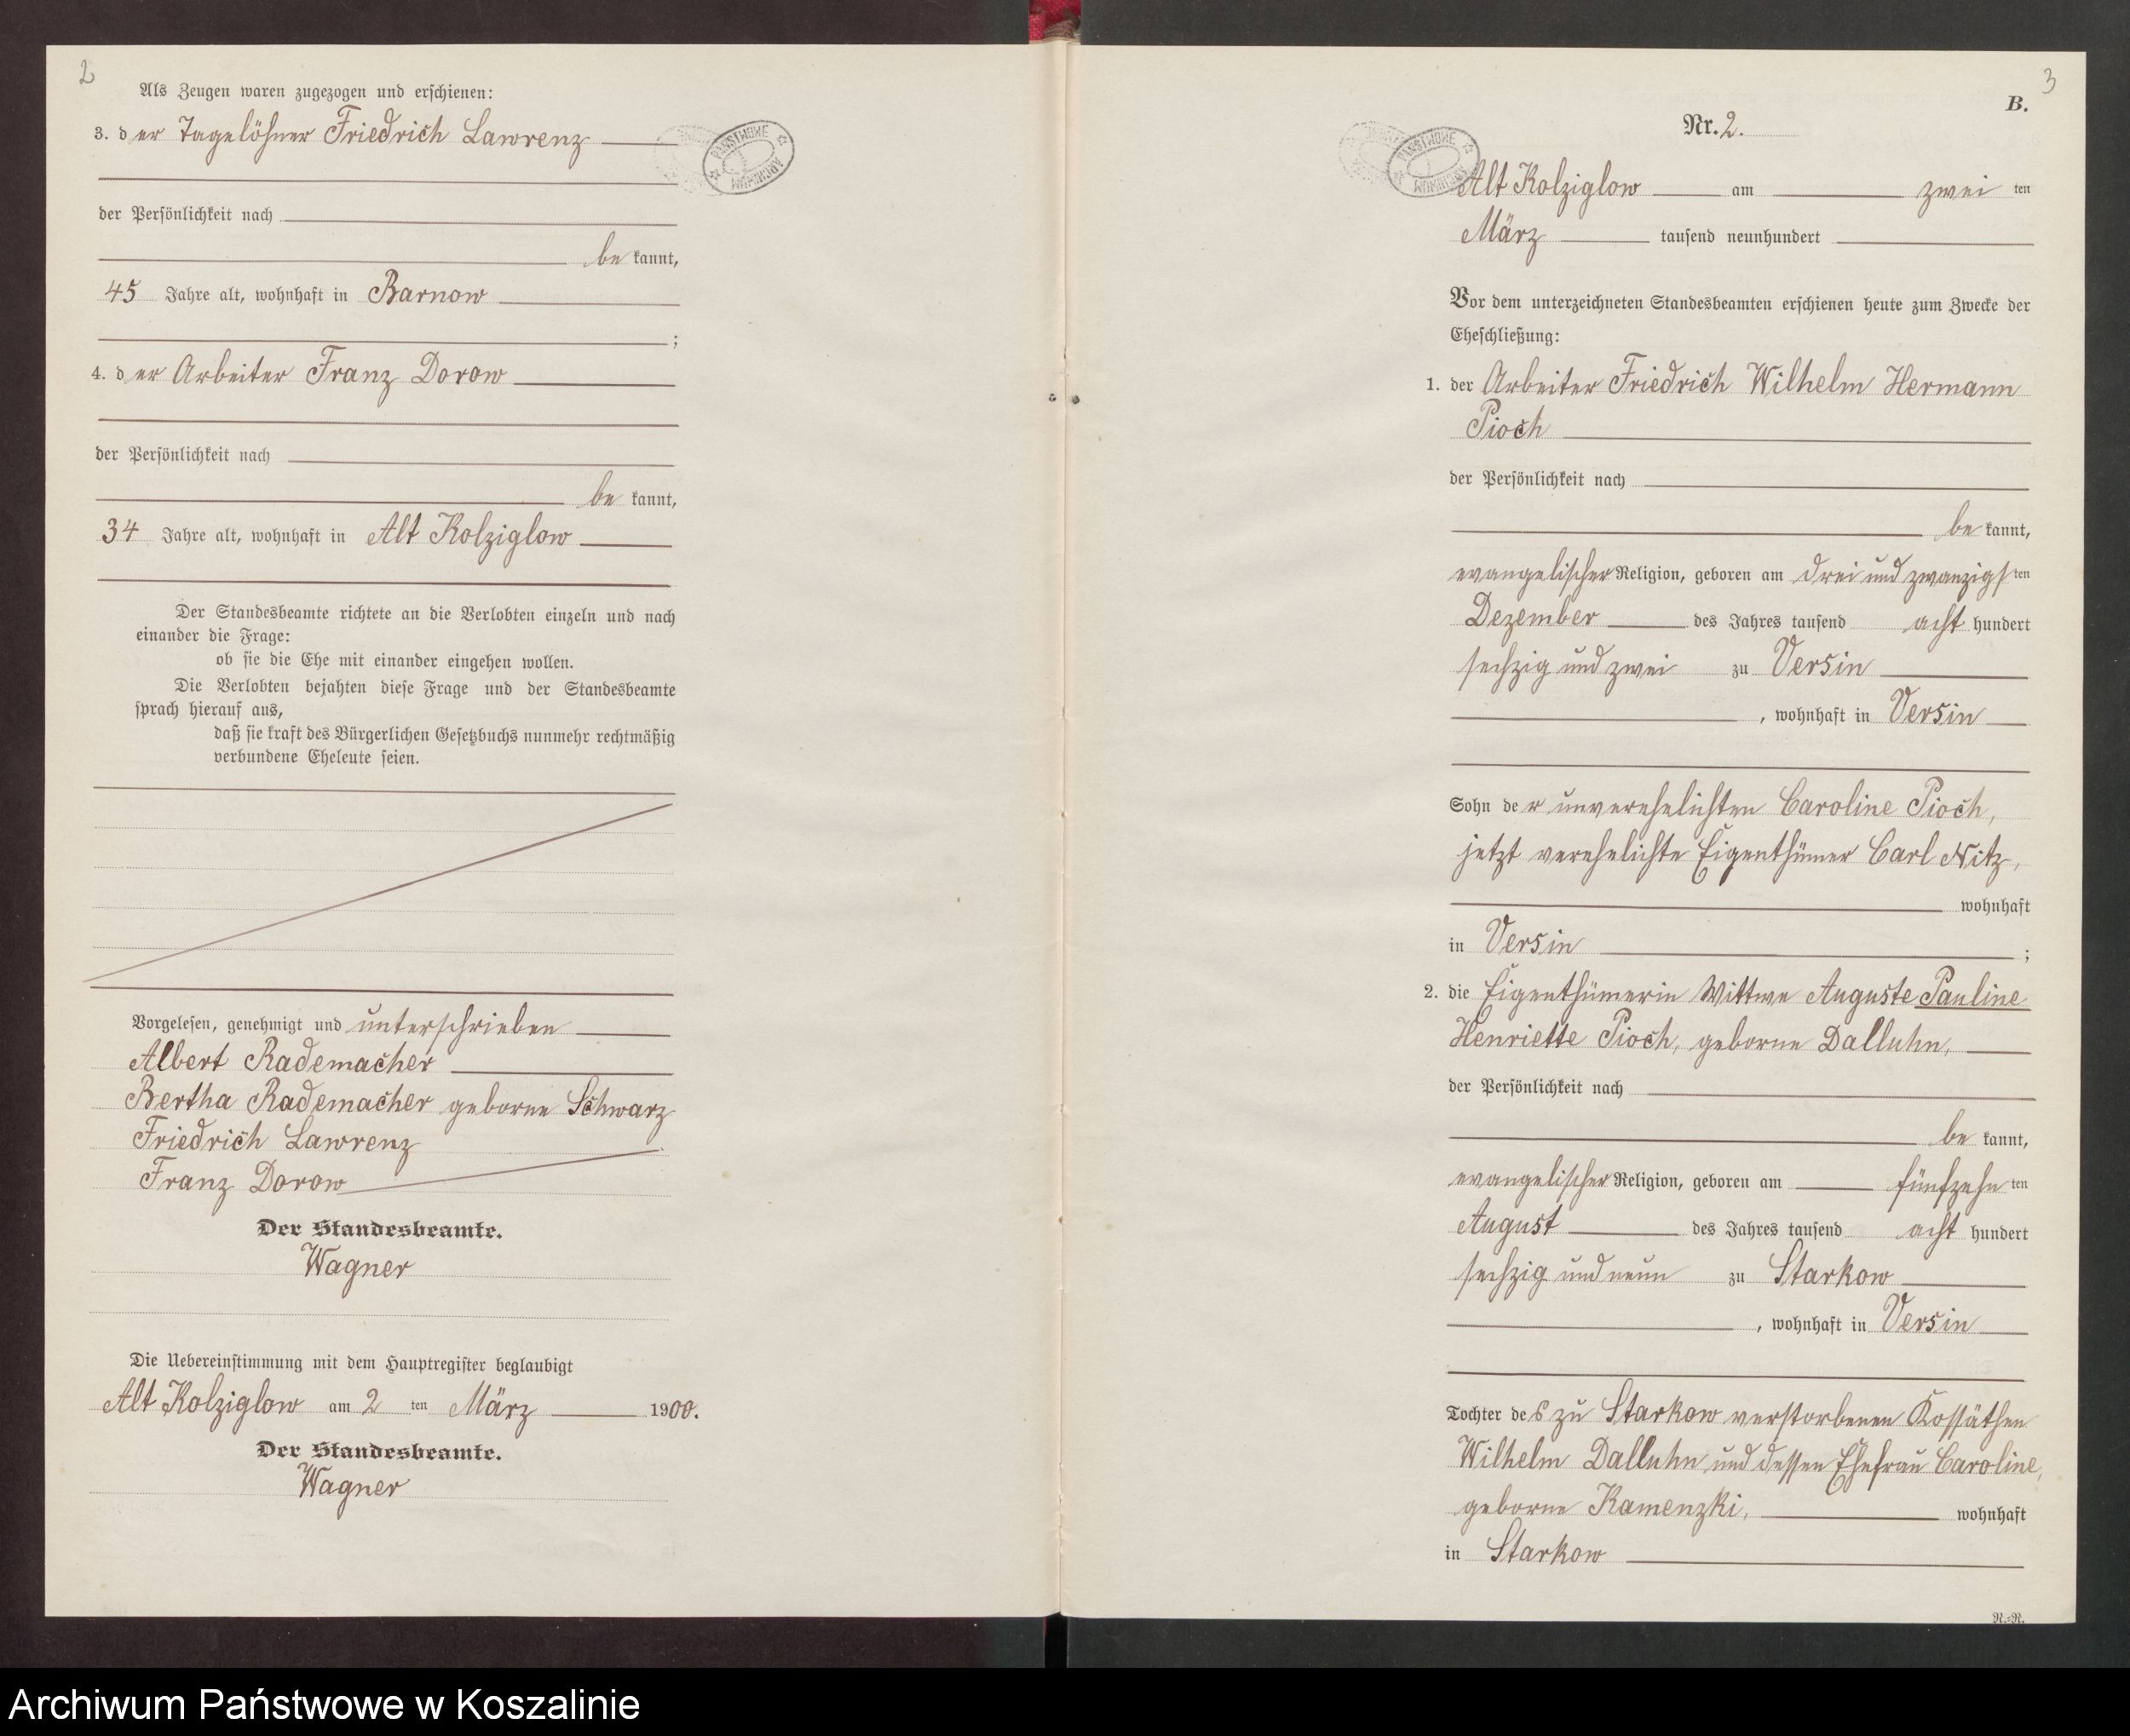 2
Als Zeugen waren zugezogen und erschienen:
3. der Tagelöhner Friedrich Lawrenz
der Persönlichkeit nach
bekannt,
45 Jahre alt, wohnhaft in Barnow
;
4. der Arbeiter Franz Dorow
der Persönlichkeit nach
bekannt,
34 Jahre alt, wohnhaft in Alt Kolziglow
Der Standesbeamte richtete an die Verlobten einzeln und nach
einander die Frage:
ob sie die Ehe mit einander eingehen wollen.
Die Verlobten bejahten diese Frage und der Standesbeamte
sprach hierauf aus,
daß sie kraft des Bürgerlichen Gesetzbuchs nunmehr rechtmäßig
verbundene Eheleute seien.
Vorgelesen, genehmigt und unterschrieben
Albert Rademacher
Bertha Rademacher geborne Schwarz
Friedrich Lawrenz
Franz Dorow
Der Standesbeamte.
Wagner
Die Uebereinstimmung mit dem Hauptregister beglaubigt
Alt Kolziglow am 2ten März 1900.
Der Standesbeamte.
Wagner
PAŃSTWOWE ARCHIWUM
3
B.
Nr. 2.
PAŃSTWOWE ARCHIWUM
Alt Kolziglow am zweiten
März tausend neunhundert
Vor dem unterzeichneten Standesbeamten erschienen heute zum Zwecke der
Eheschließung:
1. der Arbeiter Friedrich Wilhelm Hermann
Pioch
der Persönlichkeit nach
bekannt,
evangelischer Religion, geboren am drei und zwanzigsten
Dezember des Jahres tausend acht hundert
sechzig und zwei zu Versin
, wohnhaft in Versin
Sohn der unverehelichten Caroline Pioch,
jetzt verehelichte Eigenthümer Carl Nitz,
wohnhaft
in Versin ;
2. die Eigenthümerin Wittwe Auguste Pauline
Henriette Pioch, geborne Dalluhn,
der Persönlichkeit nach
bekannt,
evangelischer Religion, geboren am fünfzehnten
August des Jahres tausend acht hundert
sechzig und neun zu Starkow
, wohnhaft in Versin
Tochter des zu Starkow verstorbenen Kossäthen
Wilhelm Dalluhn und dessen Ehefrau Caroline,
geborne Kamenzki, wohnhaft
in Starkow
R.=R.
Archiwum Państwowe w Koszalinie